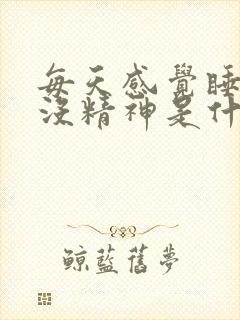 每天感覺睡
沒精神是什
鯨藍舊夢